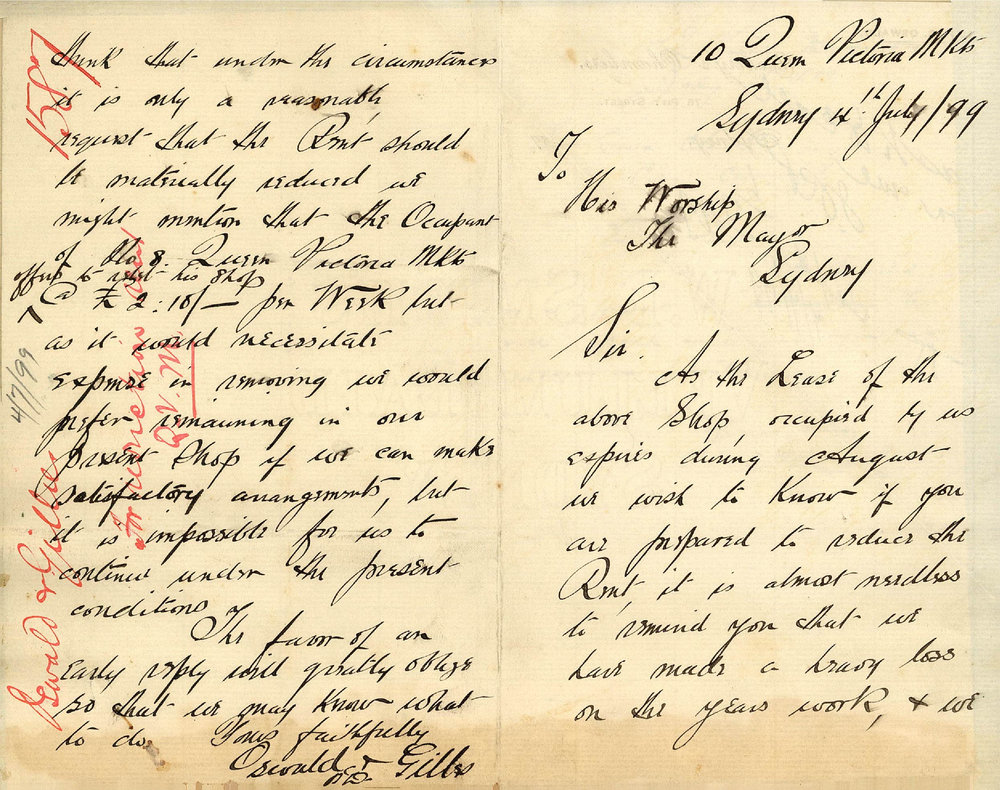 10 Queen Victoria Mkts
Sydney 4th July/99
To
His Worship
The Mayor
Sydney
Sir.
As the Lease of the
above Shop occupied by us
expires during August
we wish to know if you
are prepared to reduce the
Rent it is almost needless
to remind you that we
have made a heavy loss
on the years work, & we
think that under the circumstances
it is only a reasonable
request that the Rent should
be materially reduced we
might mention that the Occupant
of No 8. Queen Victoria Mkts
offers to relet his shop
@ £2:10/- per Week but
as it would necessitate
expense in removing we would
prefer remaining in our
present Shop if we can make
satisfactory arrangements, but
it is impossible for us to
continue under the present
conditions
The favor of an
early reply will greatly oblige
so that we may know what
to do. Yours faithfully
Oswald & Gilles
1587
4/7/99
Oswald & Gilles
Q.V.M.